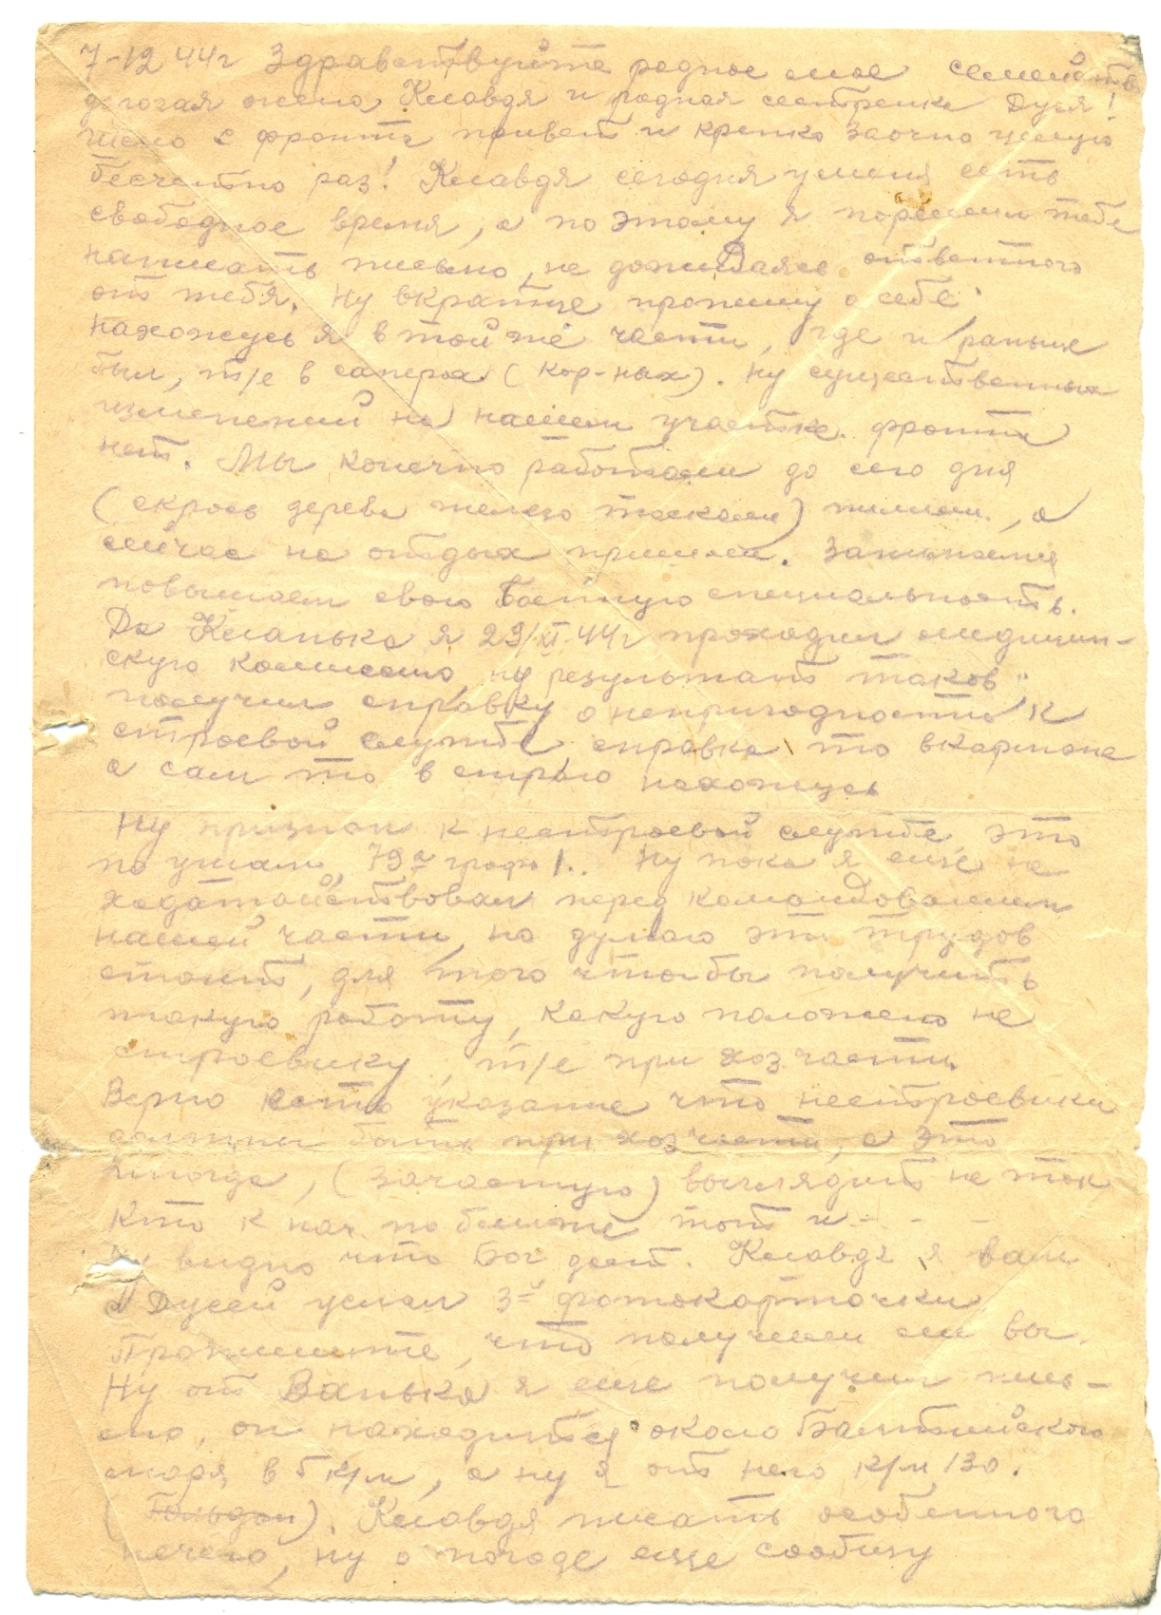 7-12 44г Здравствуйте родное мое семейство
дорогая жена Клавдя и родная сестренка Дуся!
шлю с фронта привет и крепко заочно целую
бесчетно раз! Клавдя сегодня у меня есть
свободное время, а по этому я порешил тебе
написать письмо, не дожидаясь ответного
от тебя. Ну вкратце пропишу о себе
нахожусь я в той же части, где и раньше
был, т/е в саперах (кор-ных). Ну существенных
изменений на нашем участке фронта
нет. Мы конечно работали до сего дня
(скрозь дерева железо таскали) пилили, а
сейчас на отдых пришли. Занимаемся
повышаем свою боевую специальность.
Да Кланька я 29/XI 44г проходил медицин-
скую комиссию, ну результат таков
получил справку о непригодности к
строевой службе справка то в кармане
а сам то в строю нахожусь
Ну признан к нестроевой службе это
по ушам, 79я графа 1.. Ну пока я еще не
ходатайствовал перед командованием
нашей части, но думаю эти трудов
стоит, для того чтобы получить
такую работу, какую положено не
строевику, т/е при хозчасти.
Верно есть указание что нестроевики
должны быть при хозчасти, а это
иногда, (зачастую) выглядит не так
кто к нач. по ближе тот и - - -
Ну видно что Бог даст. Клавдя я вам
с Дусей услал 3-и фотокарточки
Пропишите, что получили ли вы.
Ну от Ванька я еще получил пись-
мо, он находится около Балтийского
моря в 5 к/м, а ну я от него к/м 130.
Клавдя писать особенного
нечего, ну о погоде еще сообщу